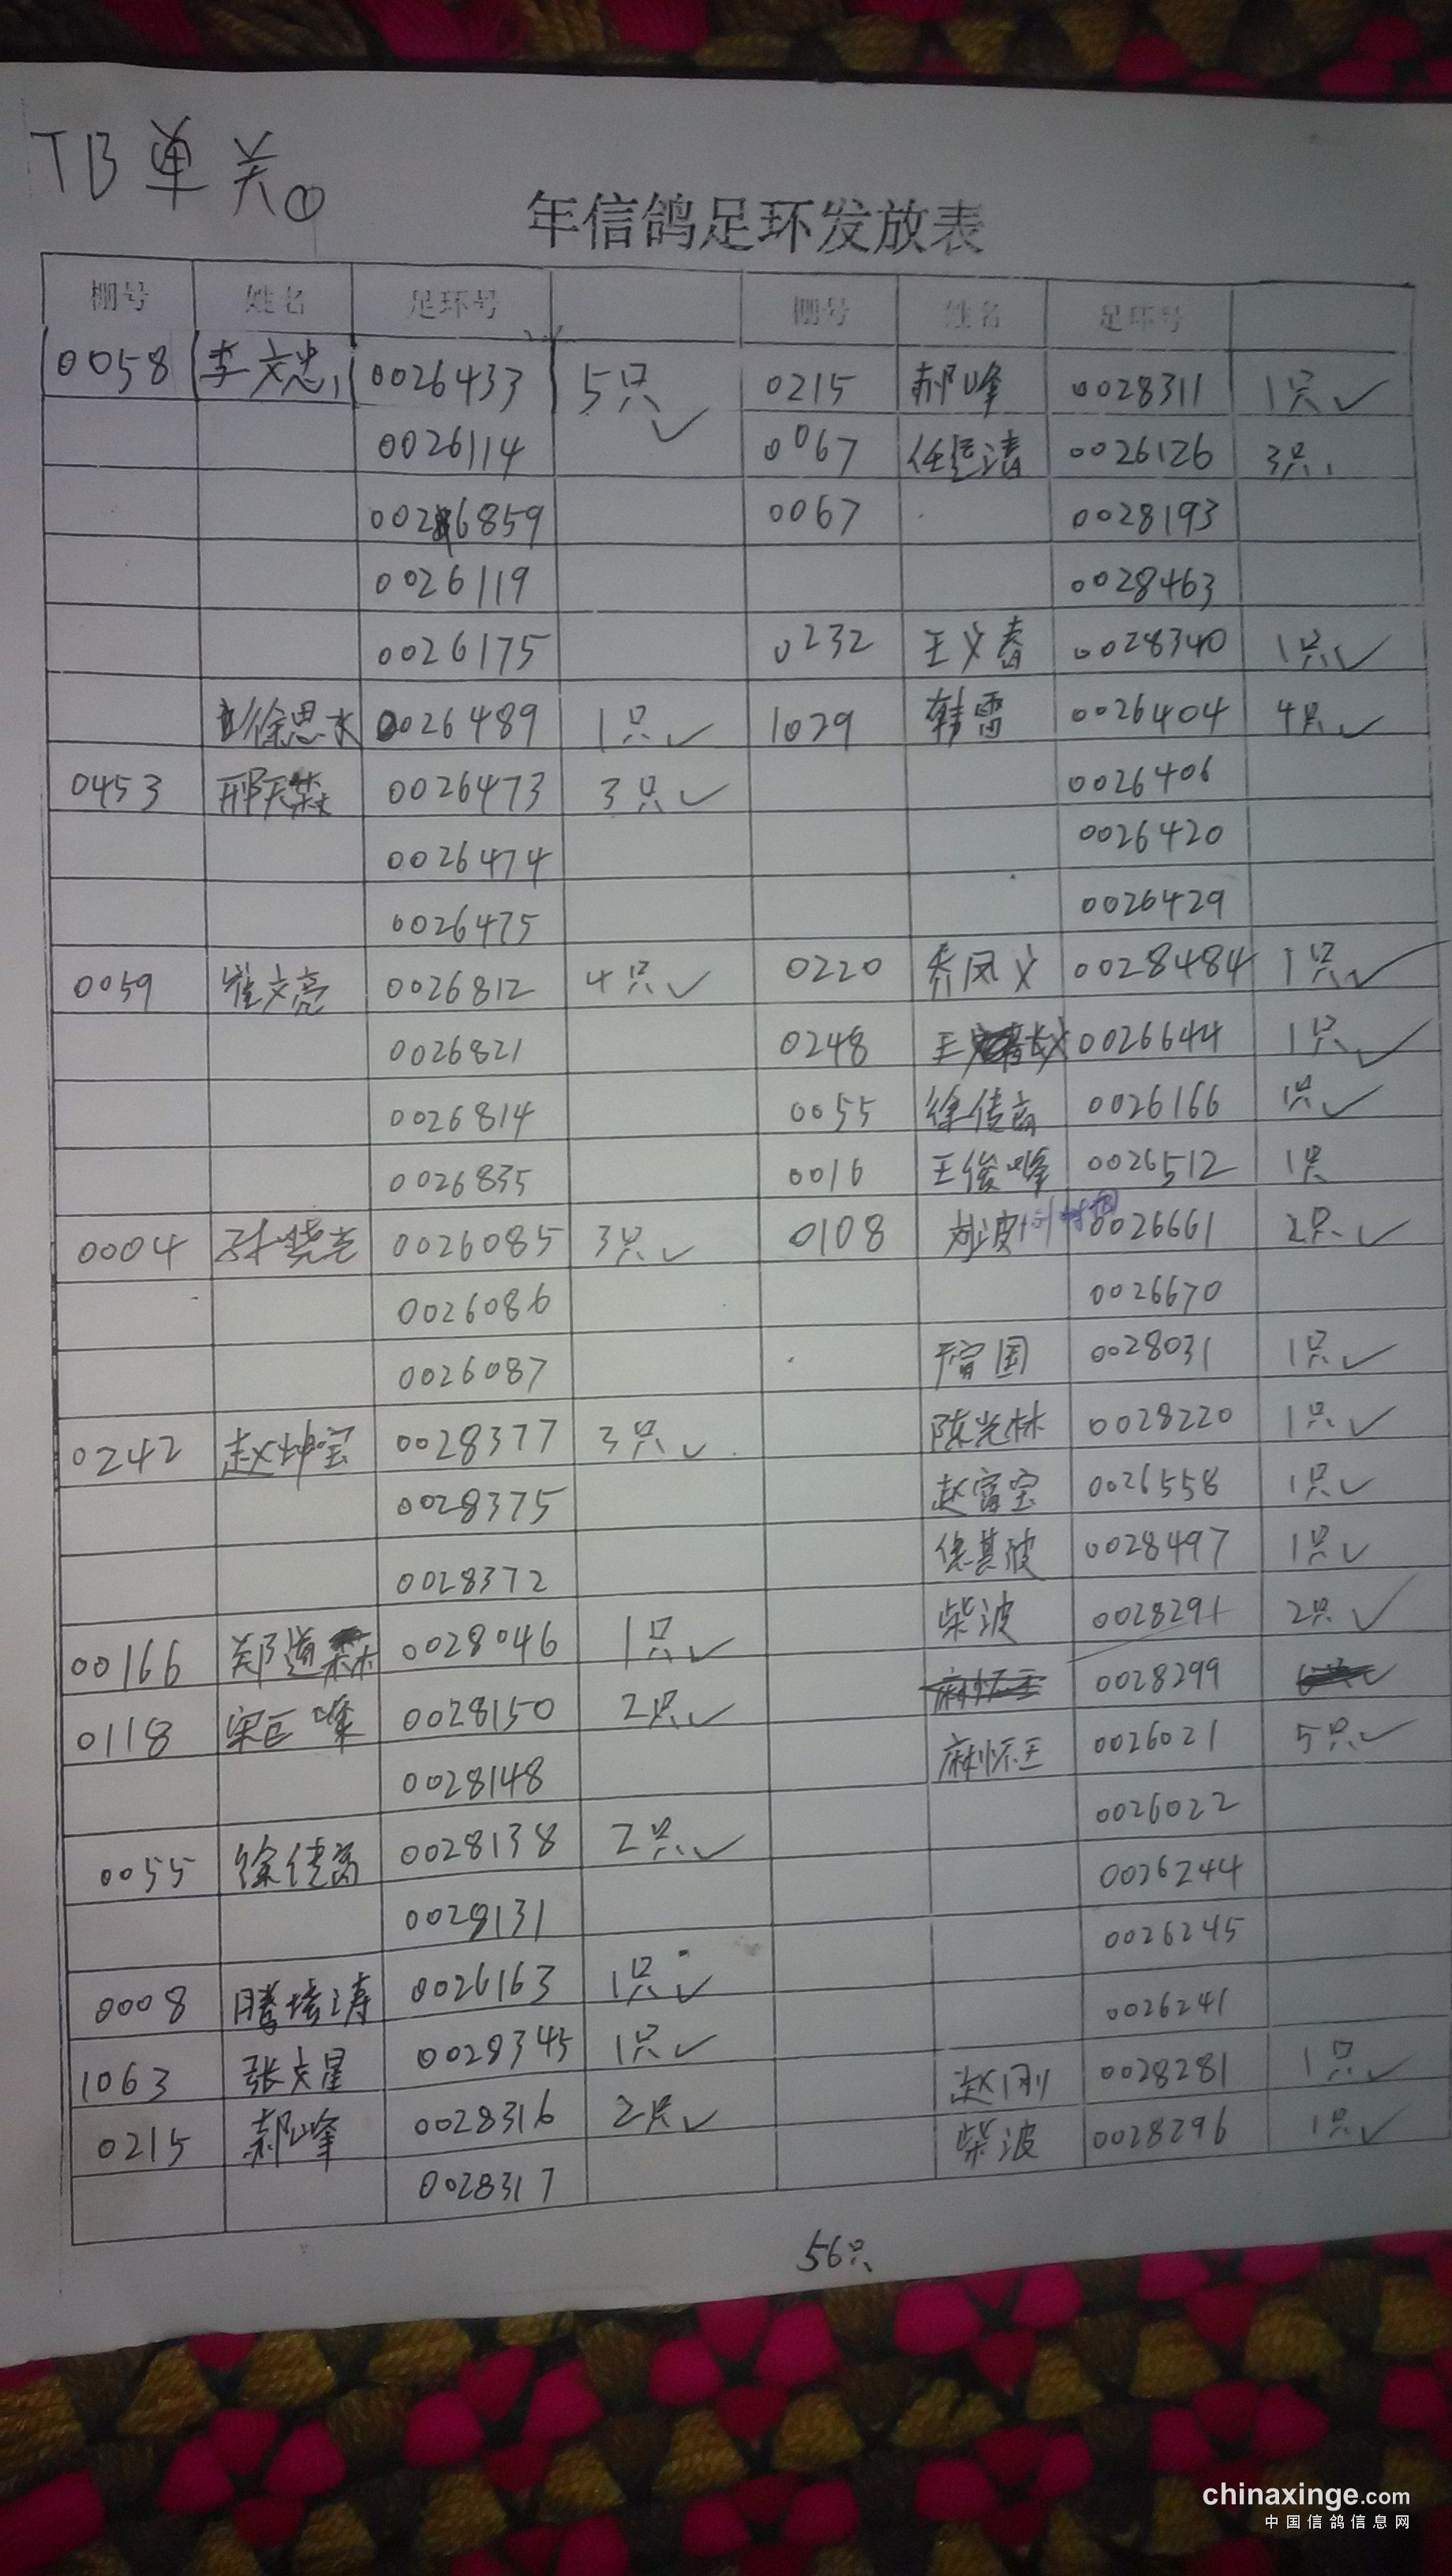 TB单关①
年信鸽足环发放表
棚号 姓名 足环号 棚号 姓名 足环号
0058 李文忠 0026433 5只✓ 0215 郝峰 0028311 1只✓
0026114 0067 任 清 0026126 3只
0026859 0067 0028193
0026119 0028463
0026175 0232 王义春 0028340 1只✓
徐思水 0026489 1只✓ 1029 韩雷 0026404 4只✓
0453 邢天森 0026473 3只✓ 0026406
0026474 0026420
0026475 0026429
0059 崔文亮 0026812 4只✓ 0220 乔凤义 0028484 1只✓
0026821 0248 王 0026644 1只✓
0026814 0055 徐传高 0026166 1只✓
0026835 0016 王俊峰 0026512 1只
0004 孙晓光 0026085 3只✓ 0108 刘波 0026661 2只✓
0026086 0026670
0026087 国 0028031 1只✓
0242 赵坤宝 0028377 3只✓ 陈光林 0028220 1只✓
0028375 赵富宝 0026558 1只✓
0028372 徐其波 0028497 1只✓
00166 郑道森 0028046 1只✓ 柴波 0028291 2只✓
0118 宋巨峰 0028150 2只✓ 0028299
0028148 麻怀玉 0026021 5只✓
0055 徐传高 0028138 2只✓ 0026022
0028131 0026244
0008 腾培涛 0026163 1只✓ 0026245
1063 张克星 0028345 1只✓ 0026241
0215 郝峰 0028316 2只✓ 赵刚 0028281 1只✓
0028317 柴波 0028296 1只✓
56只
chinaxinge.com
中国信鸽信息网